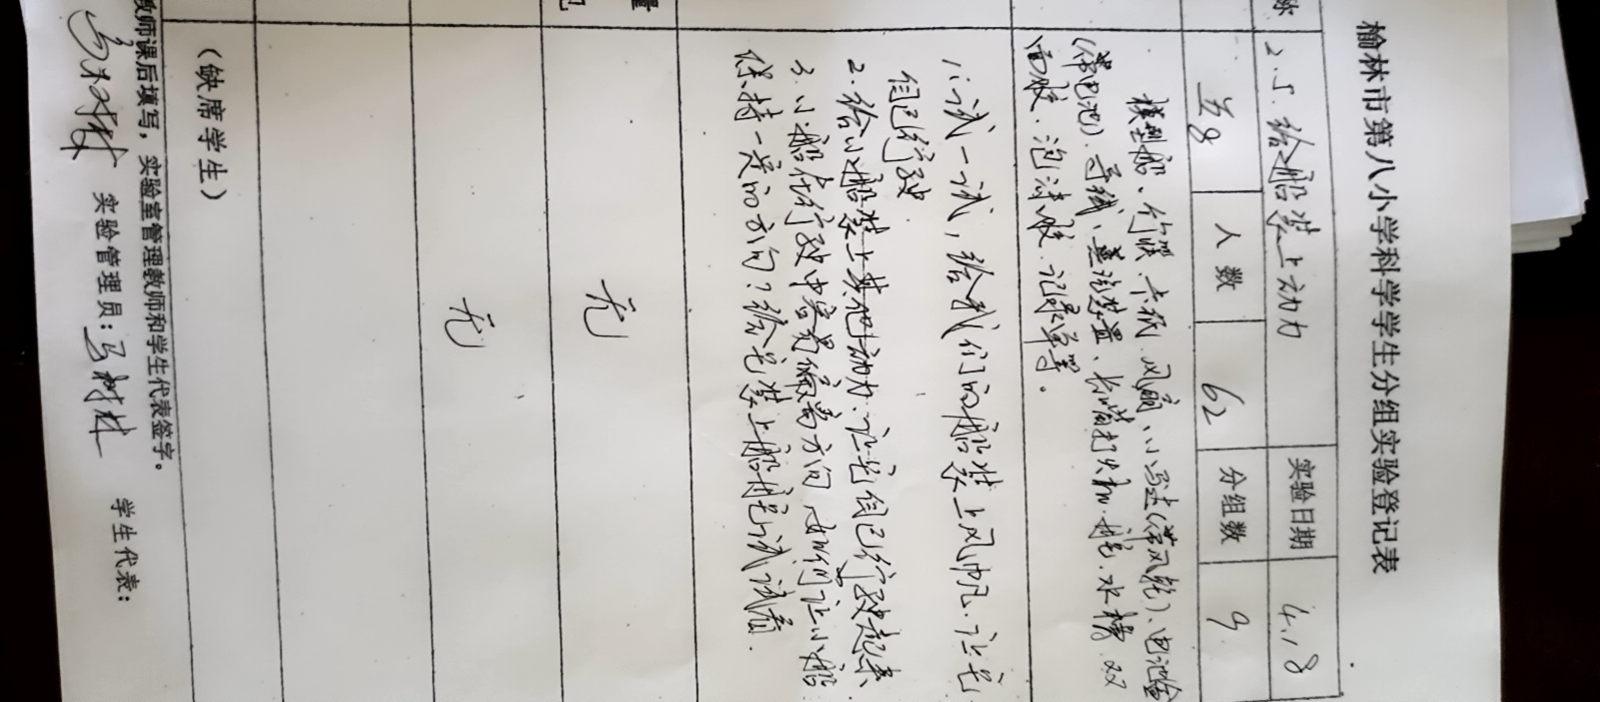 榆林市第八小学科学学生分组实验登记表
称 2.5.给船装上动力 实验日期 4.18
五8 人数 62 分组数 9
模型船、竹筷、卡纸、风扇、小马达(带风轮)、电池盒
(带电池)、导线、蒸汽装置、长嘴打火机、舵、水槽、双
面胶、泡沫胶、记录单等。
1.试一试,给我们的船装上风帆、让它
自己行驶.
2.给小船装上其他动力、让它自己行驶起来、
3.小船在行驶中容易偏离方向,如何让小船
保持一定的方向?给它装上船舵试试看.
量
无
无
(缺席学生)
教师课后填写,实验室管理教师和学生代表签字。
实验管理员:马树林 学生代表: